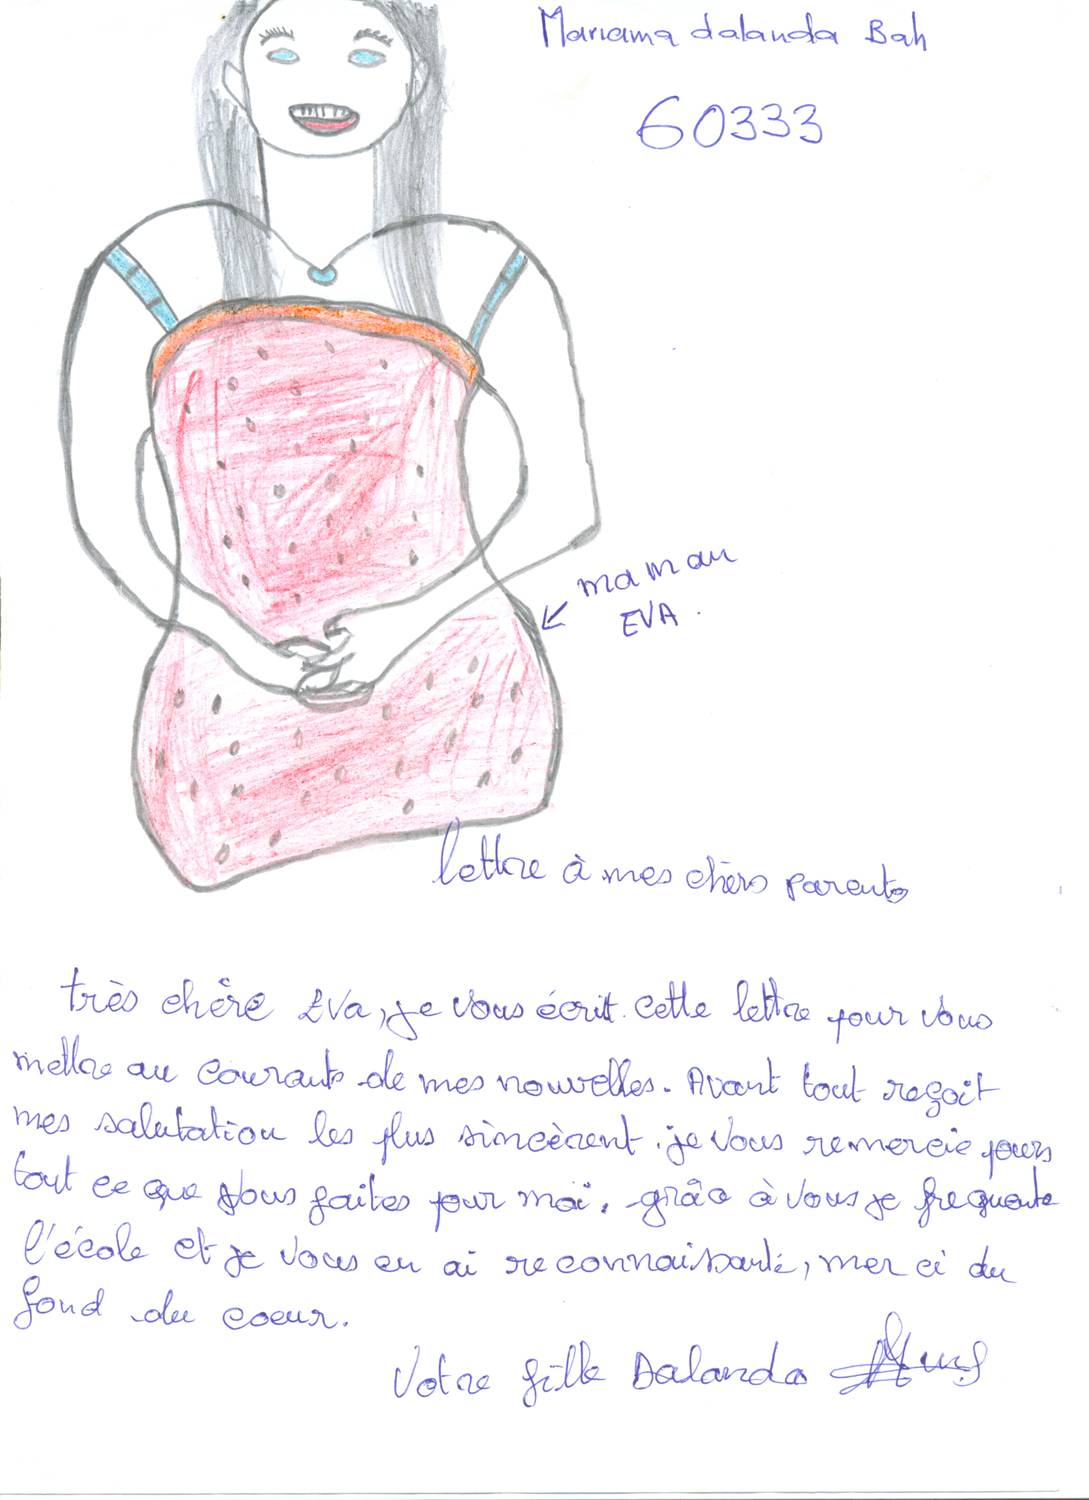 Mariama dalanda Bah
60333
maman
EVA.
lettre à mes chèrs parents
très chère EVa, je vous écrit cette lettre pour vous
mettre au courants de mes nouvelles. Avant tout reçoit
mes salutation les plus sincèrent. je vous remercie pours
tout ce que vous faites pour moi. grâc à vous je frequente
l'école et je vous en ai reconnaissante, merci du
fond du coeur.
Votre fille Dalanda